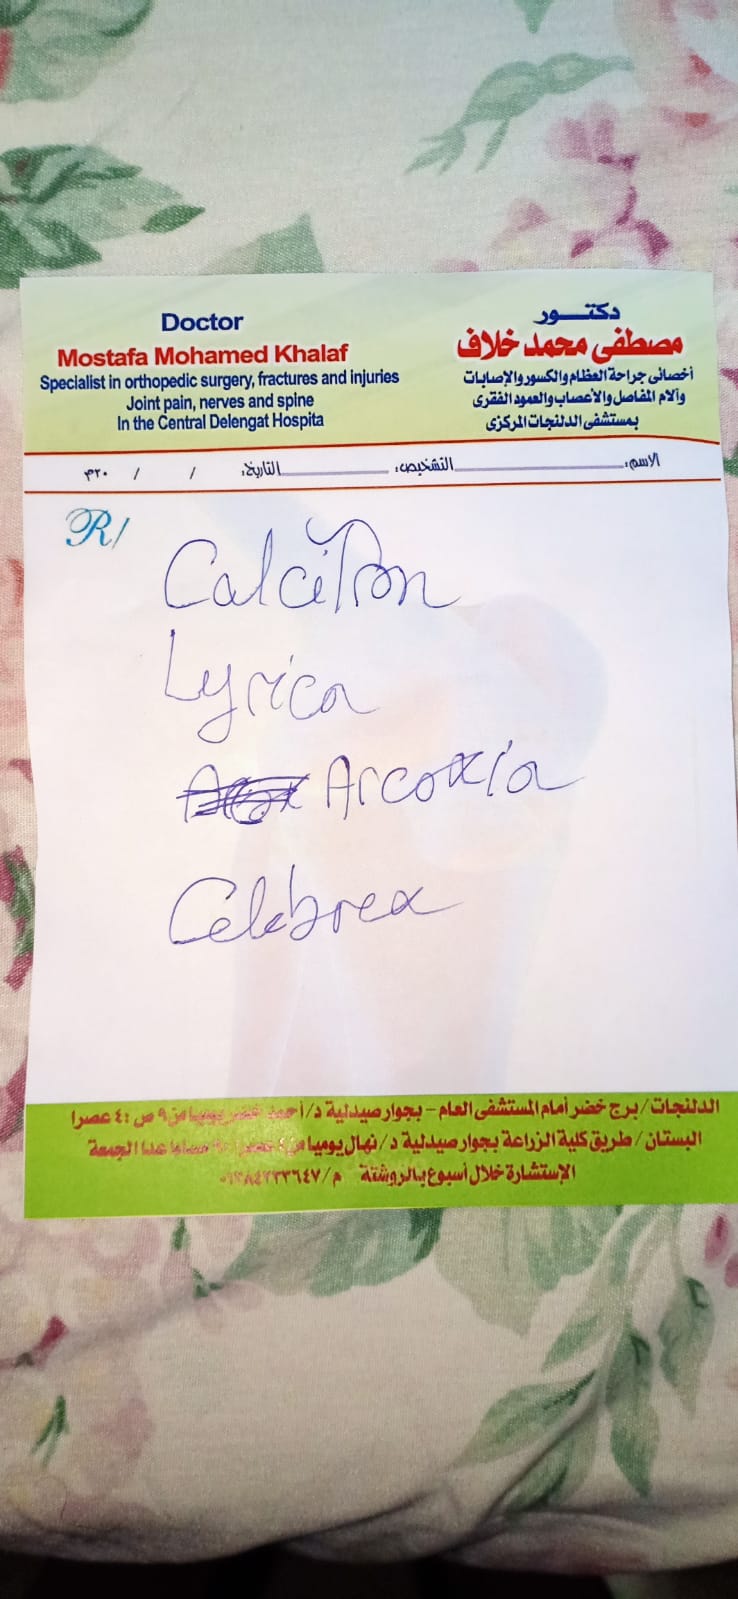 Doctor
Mostafa Mohamed Khalaf
Specialist in orthopedic surgery, fractures and injuries
Joint pain, nerves and spine
In the Central Delengat Hospita
دكتـــور
مصطفى محمد خلاف
أخصائى جراحة العظام والكسور والإصابات
وآلام المفاصل والأعصاب والعمود الفقرى
بمستشفى الدلنجات المركزى
الاسم: التشخيص: التاريخ: / / ٢٠م
R/
Calcitron
Lyrica
Arcoxia
Celebrex
الدلنجات / برج خضر أمام المستشفى العام - بجوار صيدلية د/ أحمد خضر يوميا من ٩ ص : ٤ عصرا
البستان / طريق كلية الزراعة بجوار صيدلية د/ نهال يوميا من عصرا : ٩ مساءا عدا الجمعة
الإستشارة خلال أسبوع بالروشتة م/